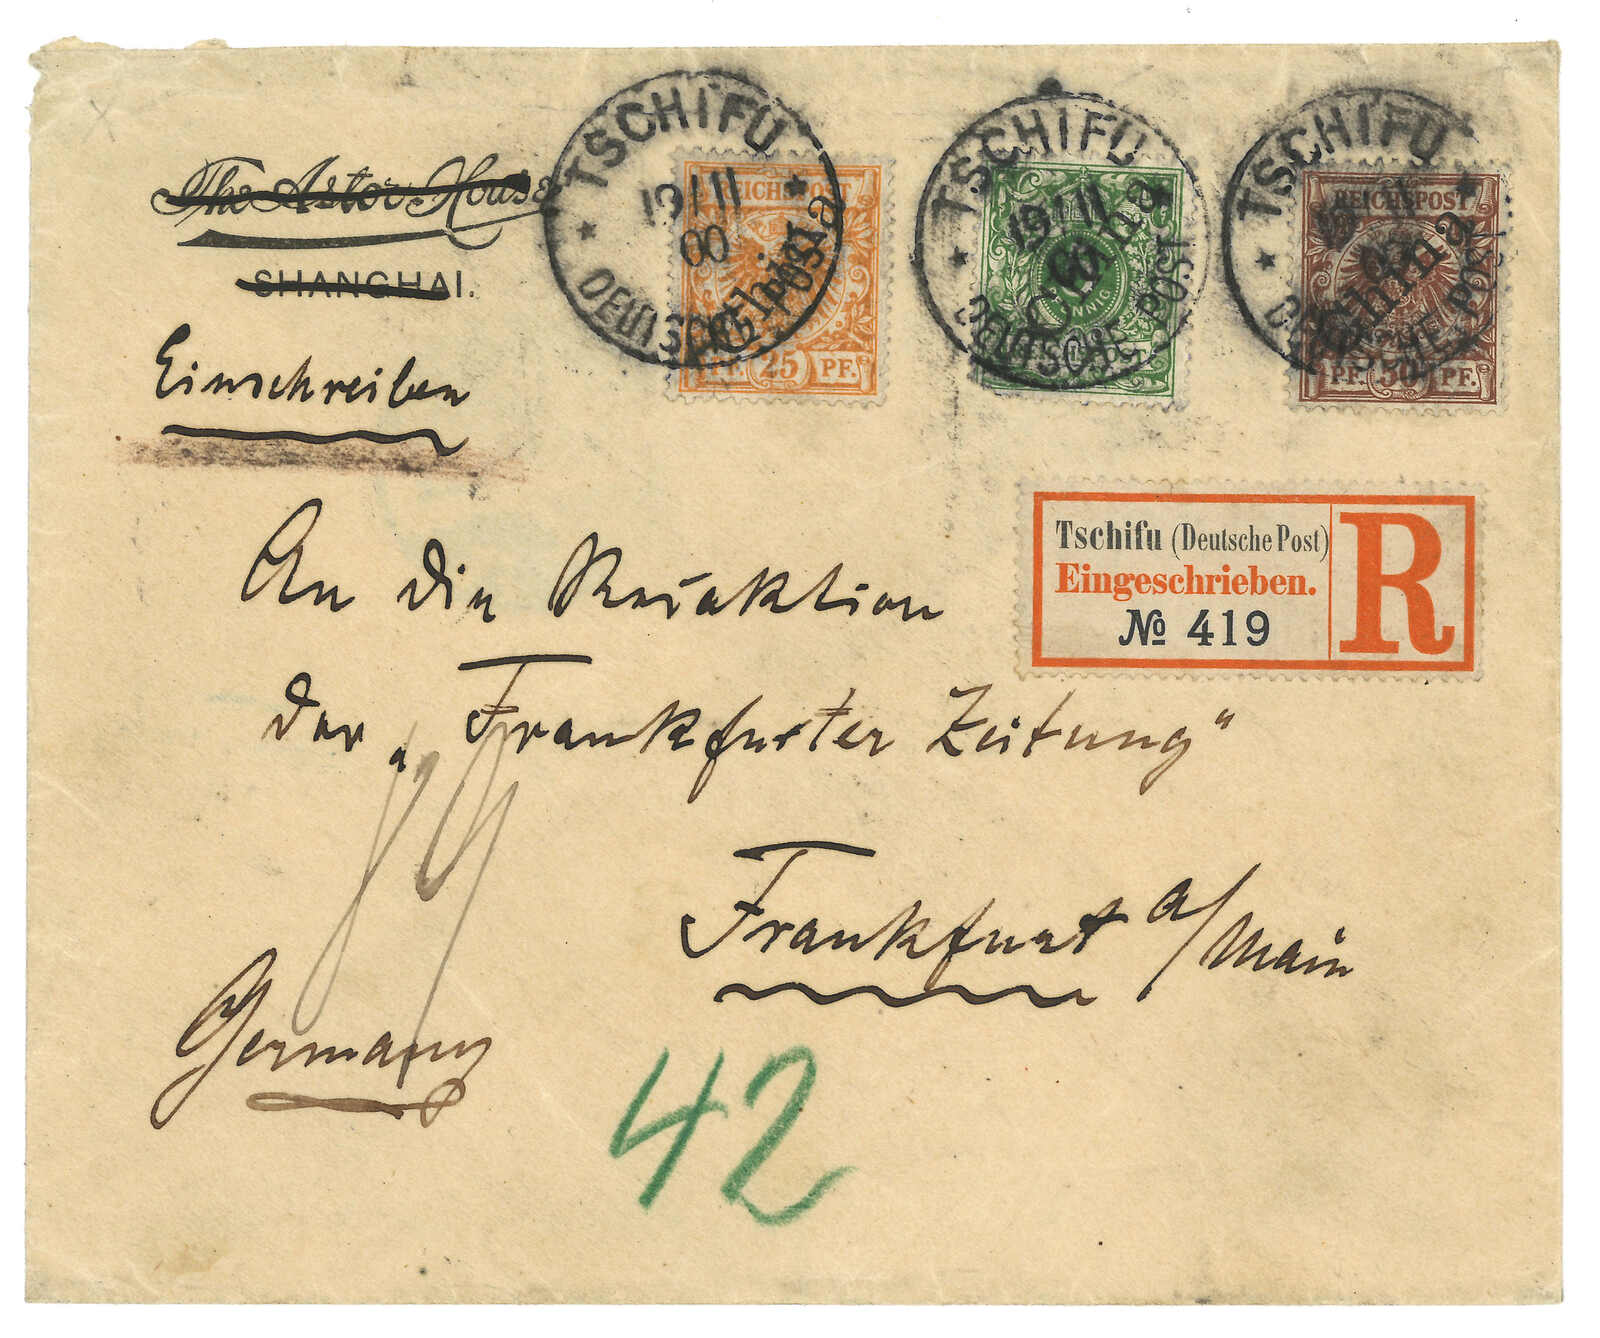 The Astor House
SHANGHAI.
Einschreiben
TSCHIFU
19/11
00
DEUTSCHE POST
REICHSPOST
China
PF. 25 PF.
TSCHIFU
19/11
DEUTSCHE POST
China
PFENNIG
TSCHIFU
DEUTSCHE POST
REICHSPOST
China
PF. 50 PF.
Tschifu (Deutsche Post)
Eingeschrieben.
№ 419
R
An die Redaktion
der „Frankfurter Zeitung“
Frankfurt a/Main
Germany
42